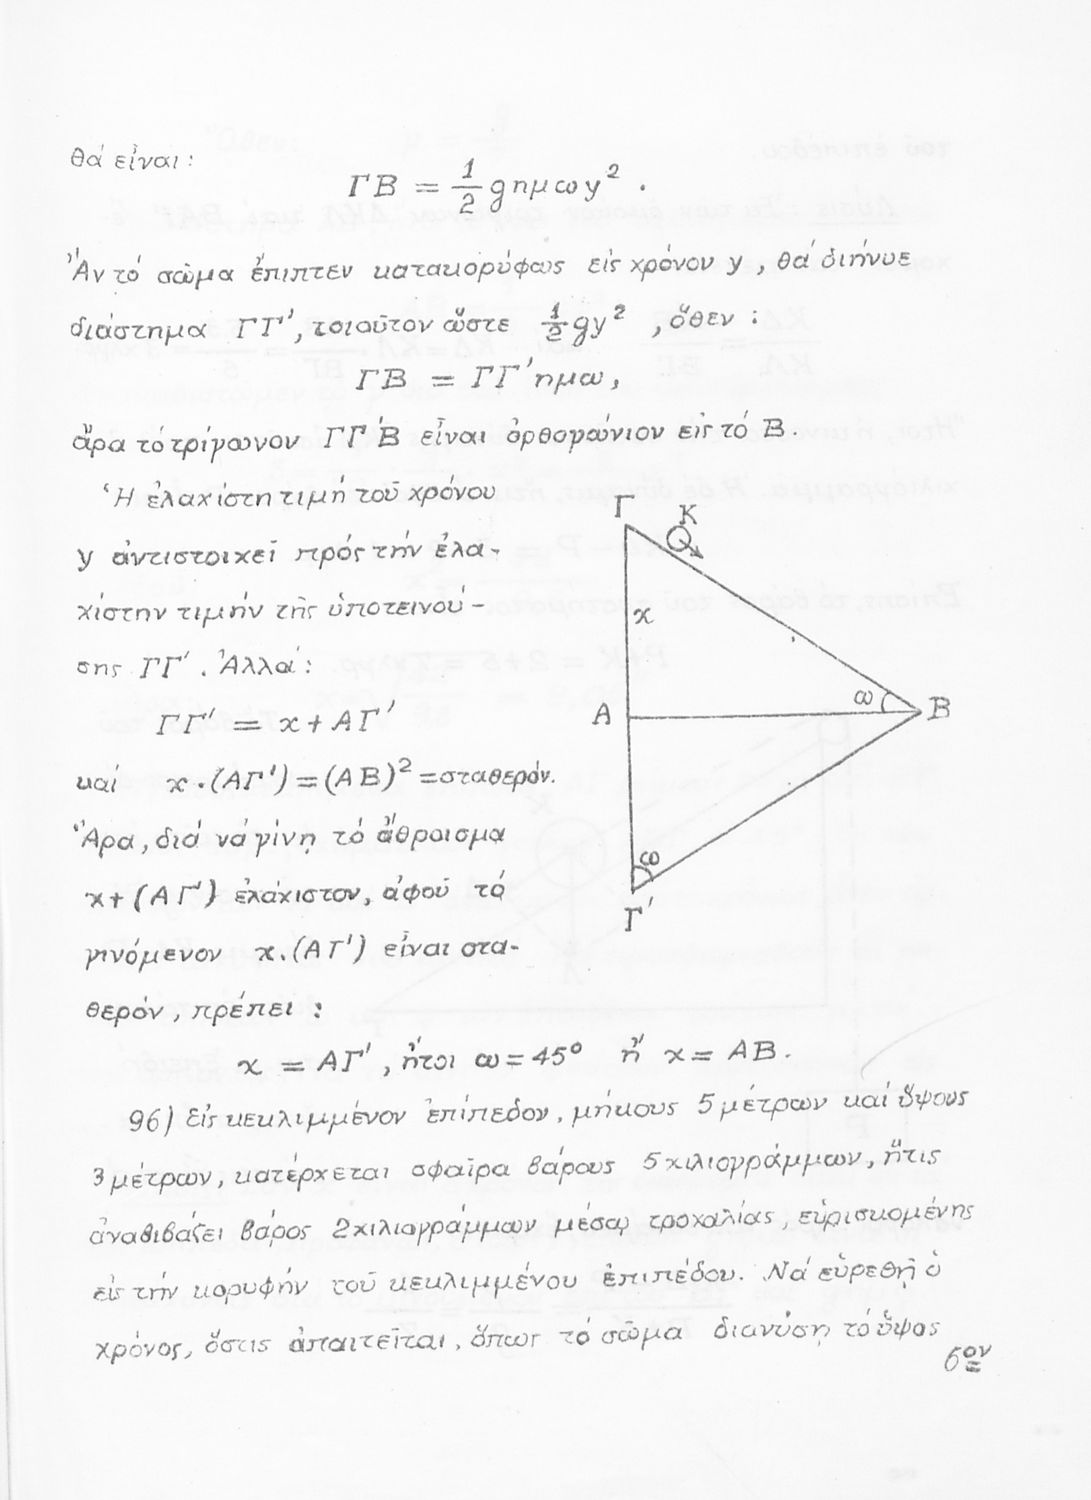 θά εἶναι:
ΓΒ = 1/2 gημω y² .
Ἄν τό σῶμα ἔπιπτεν κατακορύφως εἰς χρόνον y, θά διήνυε
διάστημα ΓΓ', τοιοῦτον ὥστε 1/2 gy², ὅθεν :
ΓΒ = ΓΓ'ημω,
ἄρα τό τρίγωνον ΓΓ'Β εἶναι ὀρθογώνιον εἰς τό Β.
Ἡ ἐλαχίστη τιμή τοῦ χρόνου
y ἀντιστοιχεῖ πρός τήν ἐλα-
χίστην τιμήν τῆς ὑποτεινού-
σης ΓΓ'. Ἀλλά:
ΓΓ' = x + ΑΓ'
καί x.(ΑΓ') = (ΑΒ)² = σταθερόν.
Ἄρα, διά νά γίνῃ τό ἄθροισμα
x + (ΑΓ') ἐλάχιστον, ἀφοῦ τό
γινόμενον x.(ΑΓ') εἶναι στα-
θερόν, πρέπει :
x = ΑΓ', ἤτοι ω = 45° ἤ x = ΑΒ.
Γ
Κ
x
Α
ω
Β
ω
Γ'
96) Εἰς κεκλιμμένον ἐπίπεδον, μήκους 5 μέτρων καί ὕψους
3 μέτρων, κατέρχεται σφαῖρα βάρους 5 χιλιογράμμων, ἥτις
ἀναβιβάζει βάρος 2 χιλιογράμμων μέσῳ τροχαλίας, εὑρισκομένης
εἰς τήν κορυφήν τοῦ κεκλιμμένου ἐπιπέδου. Νά εὑρεθῇ ὁ
χρόνος, ὅστις ἀπαιτεῖται, ὅπως τό σῶμα διανύσῃ τό ὕψος
6ον